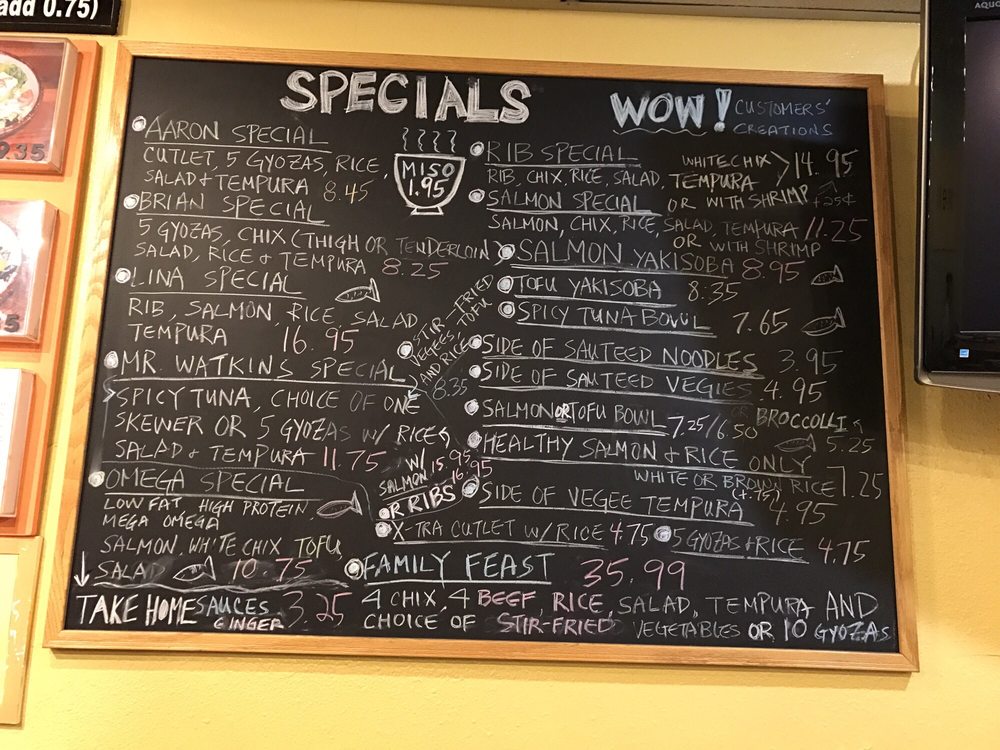 add 0.75)
9.35
5
AQUO
SPECIALS
WOW! CUSTOMERS'
CREATIONS
AARON SPECIAL
CUTLET, 5 GYOZAS, RICE,
SALAD + TEMPURA 8.45
MISO
1.95
BRIAN SPECIAL
5 GYOZAS, CHIX (THIGH OR TENDERLOIN)
SALAD, RICE + TEMPURA 8.25
LINA SPECIAL
RIB, SALMON, RICE, SALAD
TEMPURA 16.95
STIR-FRIED
VEGEES, TOFU
AND RICE
8.35
MR. WATKINS SPECIAL
SPICY TUNA, CHOICE OF ONE
SKEWER OR 5 GYOZAS W/ RICE
SALAD + TEMPURA 11.75
W/ 15.95
SALMON 16.95
OR RIBS
OMEGA SPECIAL
LOW FAT, HIGH PROTEIN,
MEGA OMEGA
SALMON, WHITE CHIX TOFU
SALAD 10.75
TAKE HOME SAUCES 3.25
GINGER
RIB SPECIAL
RIB, CHIX, RICE, SALAD, TEMPURA
WHITE CHIX 14.95
OR WITH SHRIMP +25¢
SALMON SPECIAL
SALMON, CHIX, RICE, SALAD, TEMPURA 11.25
OR WITH SHRIMP
SALMON YAKISOBA 8.95
TOFU YAKISOBA 8.35
SPICY TUNA BOWL 7.65
SIDE OF SAUTEED NOODLES 3.95
SIDE OF SAUTEED VEGIES 4.95
OR BROCCOLLI
5.25
SALMON OR TOFU BOWL 7.25/6.50
HEALTHY SALMON + RICE ONLY
WHITE OR BROWN RICE 7.25
(+.75)
SIDE OF VEGEE TEMPURA 4.95
X-TRA CUTLET W/RICE 4.75
5 GYOZAS + RICE 4.75
FAMILY FEAST 35.99
4 CHIX, 4 BEEF, RICE, SALAD, TEMPURA AND
CHOICE OF STIR-FRIED VEGETABLES OR 10 GYOZAS